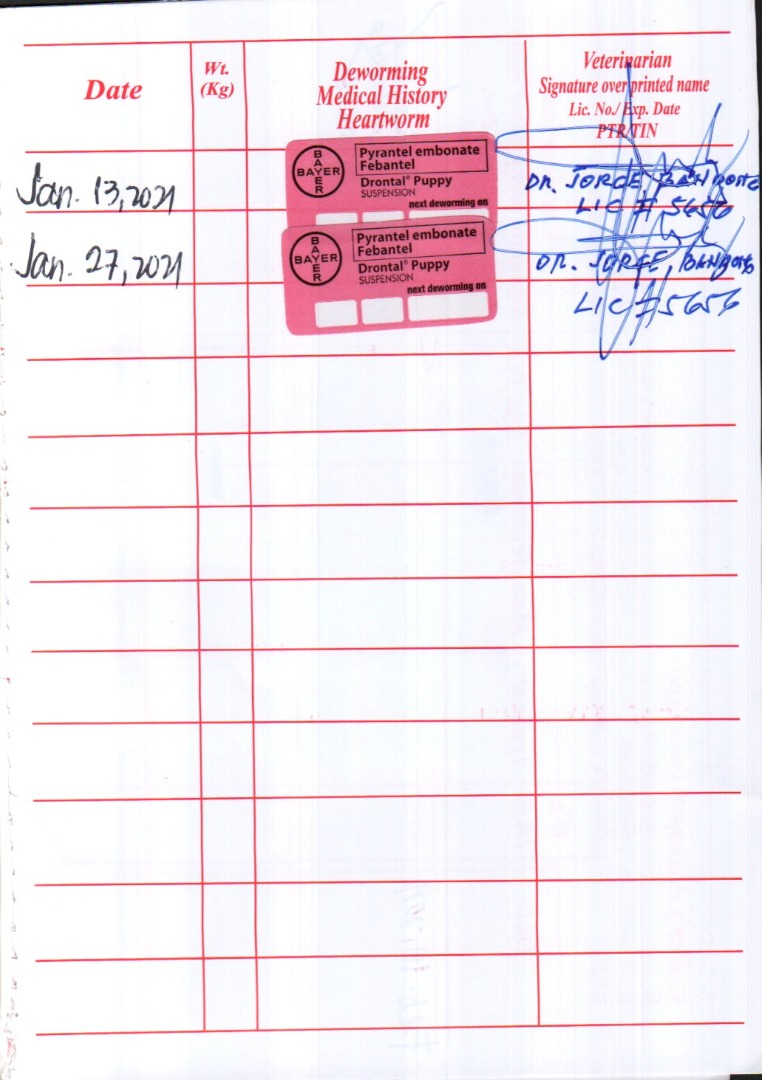 Date
Wt.
(Kg)
Deworming
Medical History
Heartworm
Veterinarian
Signature over printed name
Lic. No./ Exp. Date
PTR/TIN
Jan. 13, 2021
BAYER
BAYER
Pyrantel embonate
Febantel
Drontal® Puppy
SUSPENSION
next deworming on
DR. JORGE
LIC # 5656
Jan. 27, 2021
BAYER
BAYER
Pyrantel embonate
Febantel
Drontal® Puppy
SUSPENSION
next deworming on
DR. JORGE
LIC # 5656